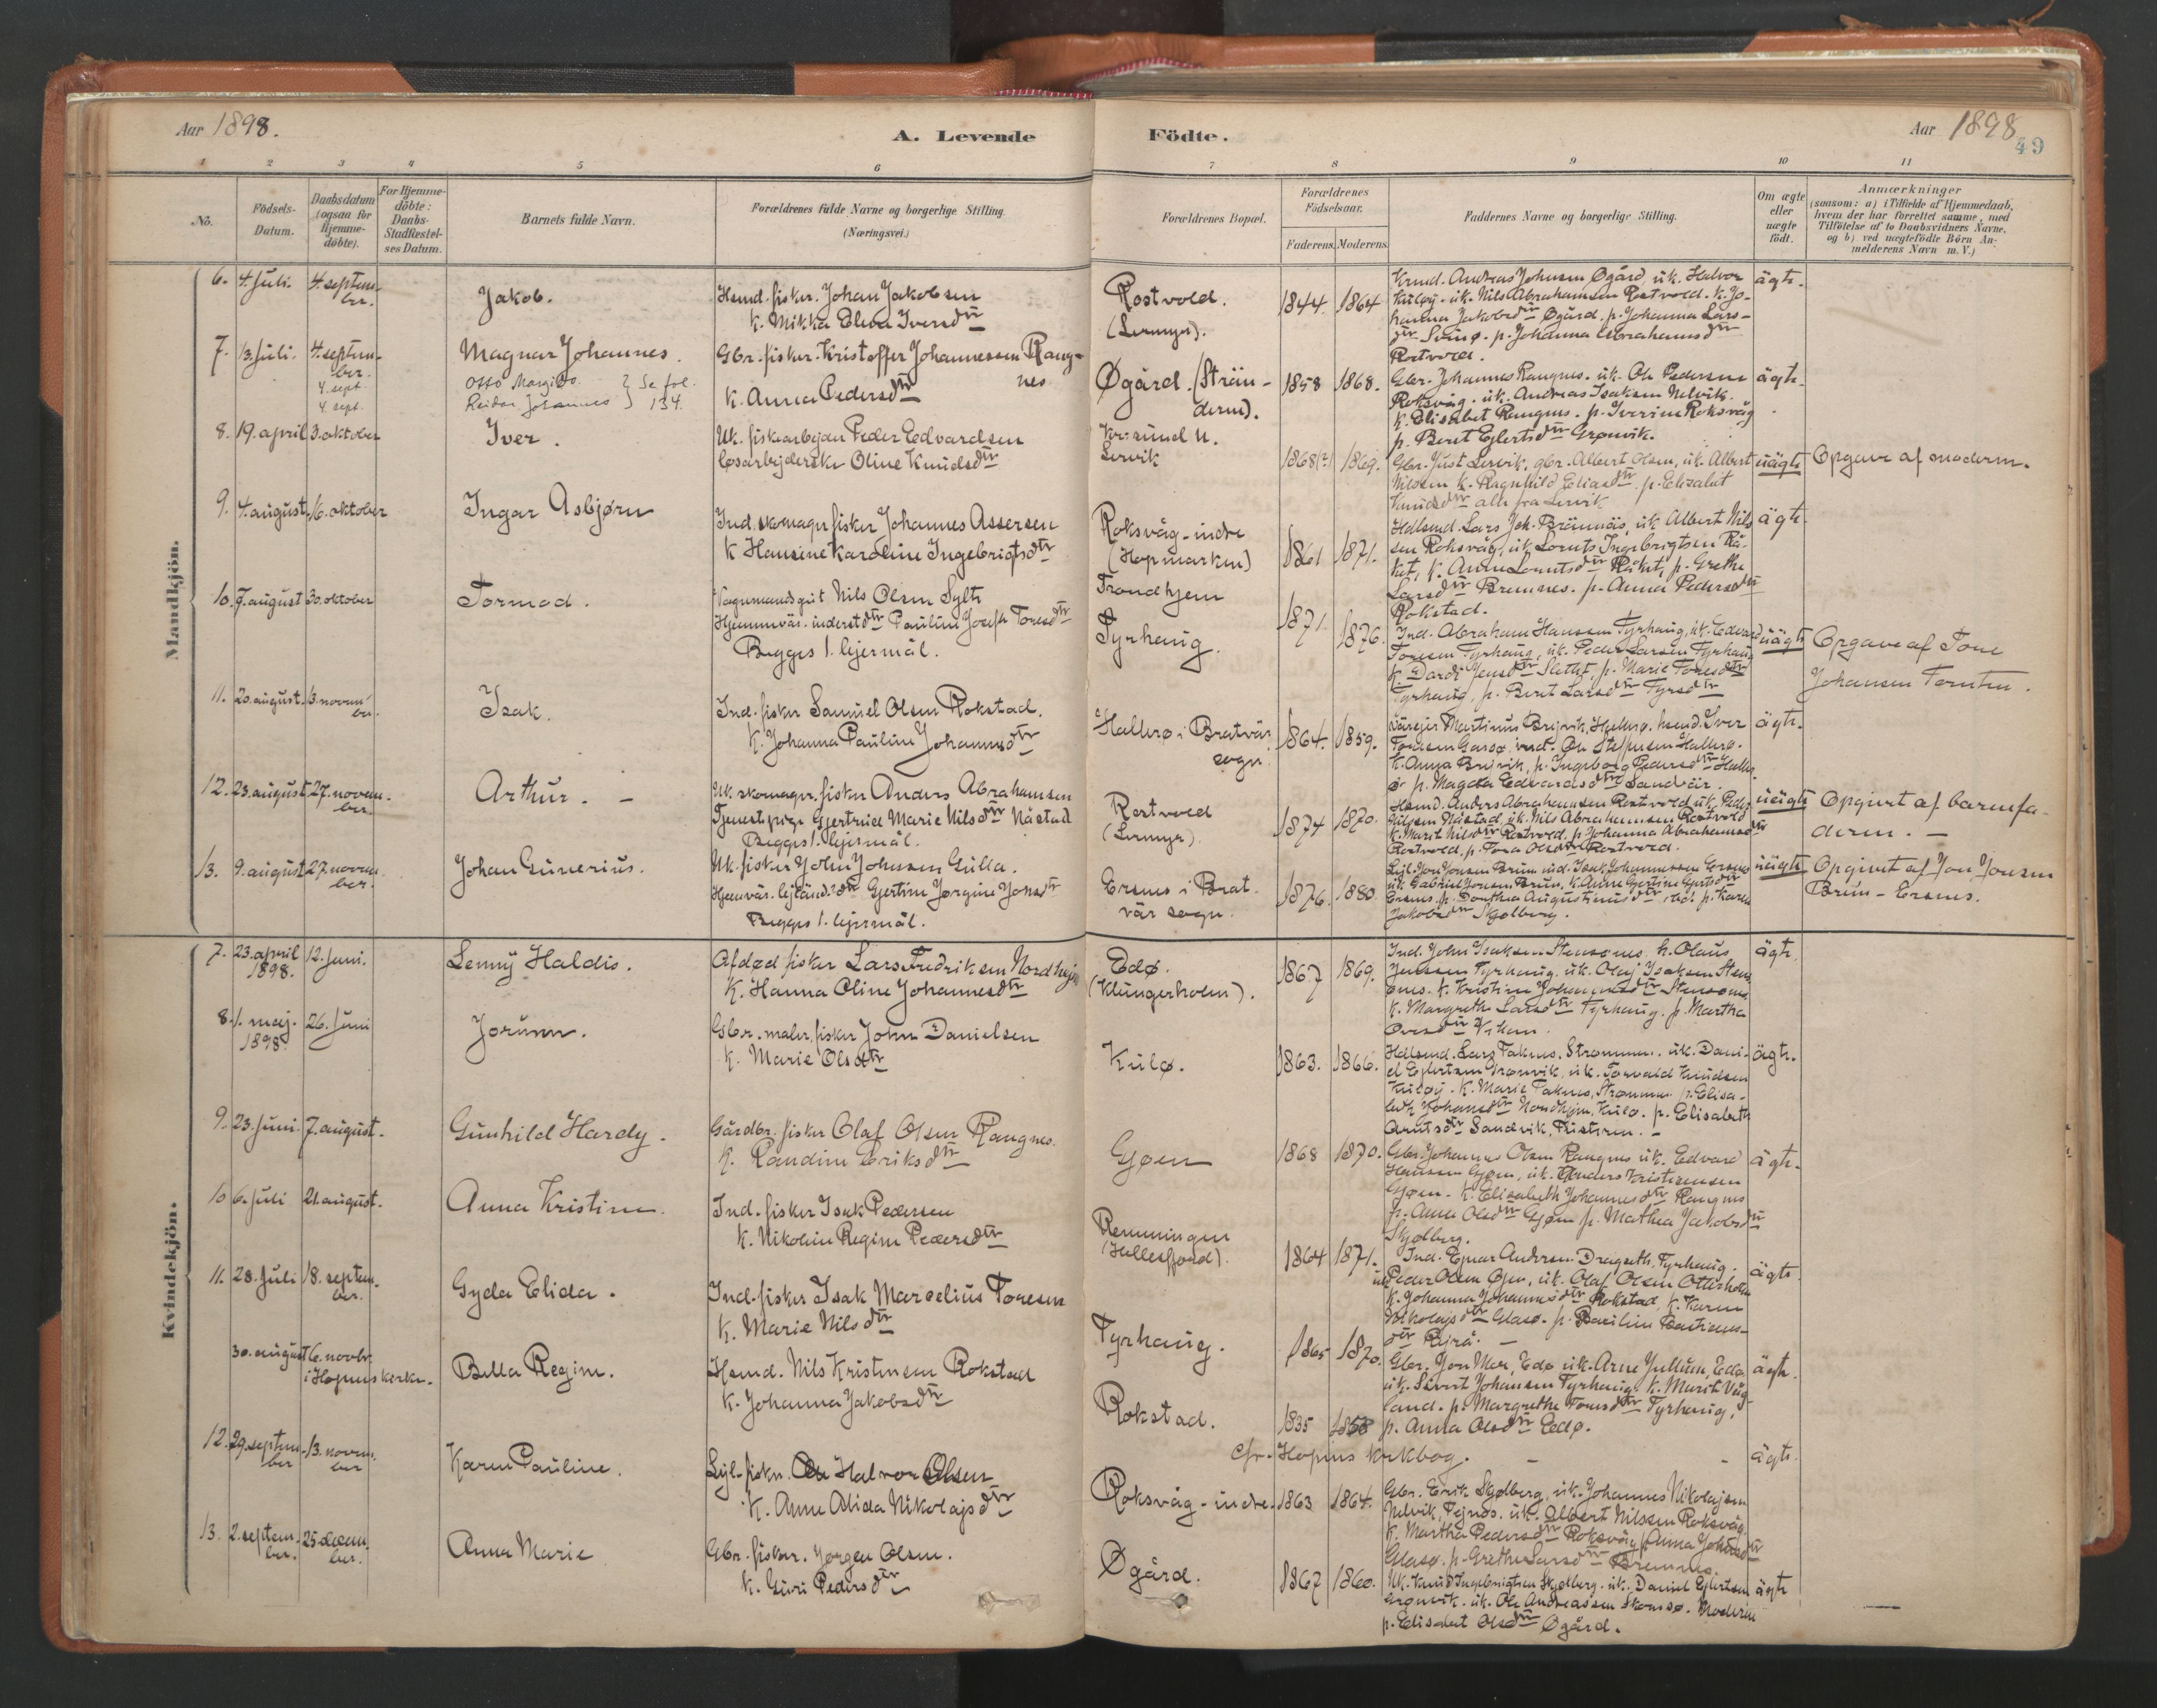 Aar 1898.
A. Levende
Födte.
Aar 1898
49
1 2 3 4 5 6 7 8 9 10 11
No.
Födsels-
Datum.
Daabsdatum
(ogsaa for
Hjemme-
döbte).
For Hjemme-
döbte:
Daabs-
Stadfæstel-
ses Datum.
Barnets fulde Navn.
Forældrenes fulde Navne og borgerlige Stilling.
(Næringsvei.)
Forældrenes Bopæl.
Forældrenes
Födselsaar.
Faderens. Moderens.
Faddernes Navne og borgerlige Stilling.
Om ægte
eller
uægte
födt.
Anmærkninger
(saasom: a) i Tilfælde af Hjemmedaab,
hvem der har forrettet samme, med
Tilföielse af to Daabsvidners Navne,
og b) ved uægtefödte Börn An-
melderens Navn m. V.)
Mandkjön.
6. 4. juli. 4. septem-
ber.
Jakob.
Hsmd. fisker. Johan Jakobsen
k. Mikka Elena Iversdtr
Rostvold.
(Lermyr).
1844. 1864
Krmd. Andreas Johnsen Øgård, uk. Halvor
Kuløy. uk. Nils Abrahamsen Rostvold. k. Jo-
hanna Jakobsdtr Øgård. p. Johanna Lars-
dtr Svinø. p. Johanna Abrahamsdtr
Rostvold.
ägte.
7. 13. juli. 4. septem-
ber.
4. sept.
4. sept.
Magnar Johannes.
Otto Margido. } Se fol.
Reidar Johannes } 134.
Gbr. fisker. Kristoffer Johannessen Rang-
nes
k. Anna Pedersdtr
Øgård. (Strän-
dern).
1858 1868.
Gbr. Johannes Rangnes. uk. Ole Pedersen
Roksvåg. uk. Andreas Isaksen Nelvik.
k. Elisabet Rangnes. p. Iverine Roksvåg
p. Beret Eglertsdtr Grønvik.
ägte.
8. 19. april 3. oktober
Iver.
Uk. fiskearbejder Peder Edvardsen
løsarbejderske Oline Knudsdtr
Kr:sund N.
Lervik
1868(?) 1869.
Gbr. Just Lervik, gbr. Albert Olsen, uk. Albert
Nilssen k. Ragnhild Eliasdtr. p. Elisabet
Knudsdtr alle fra Lervik
uägte
Opgave af moderen.
9. 4. august. 16. oktober
Ingar Asbjørn
Ind. skomager fisker Johannes Assersen
k Hansine Karoline Ingebrigtsdtr
Roksvåg-indre
(Hopmarken)
1861 1871.
Hdlsmd. Lars Joh. Brännäs, uk Albert Nils
sen Roksvåg, uk Lornts Ingebrigtsen Rå-
ket, k. Anne Lorntsdtr Råket, p. Grethe
Larsdtr Bremnes. p. Anna Pedersdtr
Rokstad.
ägte.
10. 7. august 30. oktober
Tormod.
Vognmandsgut Nils Olsen Sylte
Hjemmevär. inderstdtr Pauline Josefa Toresdtr
Begges 1. lejermål.
Trondhjem
Tyrhaug.
1871. 1876.
Ind. Abraham Hanssen Tyrhaug, uk. Edvard
Toresen Tyrhaug, uk. Peder Larsen Tyrhaug
k. Dardi Jensdtr Slethe, p. Marie Toresdtr
Tyrhaug, p. Beret Larsdtr
uägte
Opgave af Tore
Johansen
11. 20. august. 13. novem-
ber.
Isak.
Ind. fisker Samuel Olsen Rokstad.
k. Johanna Pauline Johannesdtr
Hallerø i Bratvär
sogn
1864. 1859.
Värejer Martinus Brejvik, Hallerø. hsmd. Iver
Toresen
k. Anna Brejvik, p. Ingeborg Pedersdtr Haller
ø p. Magda Edvardsdtr Sandvär.
ägte.
12. 23. august 27. novem-
ber.
Arthur. -
Uk. skomager. fisker Anders Abrahamsen
Tjenestpige Gjertrud Marie Nilsdtr Nästad
Begges 1. lejermål.
Rostvold
(Lermyr).
1874 1870.
Hsmd. Anders Abrahamsen Rostvold uk. Peder
Nilssen Nästad, uk. Nils Abrahamsen Rostvold
k. Marit Nilsdtr Rostvold. p. Johanna Abrahamsdtr
Rostvold, p. Tora Olsdtr Rostvold.
uägte
Opgivet af barnefa-
deren. -
13. 9. august 27. novem
ber.
Johan Gunerius.
Uk. fisker John Johnssen Gulla.
Hjemvär. lejländ. dtr Gjertine Jørgine Jonsdtr
Begges 1. lejermål.
Ersnes i Brat-
vär sogn.
1876. 1880.
Lejl. Jon Jonsen Brun ind. Isak Johannessen Ersnes
uk. Gabriel Jonsen Brun, k. Anne Gjertine Gjertsdtr
Ersnes p. Dorthea Augustinusdtr ibd. p. Karen
Jakobsdtr Skjølberg.
uägte
Opgivet af Jon Jonsen
Brun - Ersnes.
Kvindekjön.
7. 23. april
1898. 12. juni.
Lenny Haldis.
Afdød fisker Lars Fredriksen Nordhejm
k. Hanna Oline Johannesdtr
Edø.
(Klungerholm).
1867 1869.
Ind. John Isaksen Stensønes. h. Olaus
Jenssen Tyrhaug. uk. Olaf Isaksen Stens
ønes. k. Kristine Johannesdtr Stensønes
k. Margrethe Larsdtr Tyrhaug. p. Martha
ägte.
8. 1. maj.
1898. 26. juni
Jorunn.
Gbr. maler, fisker John Danielsen
k. Marie Olsdtr
Kulø.
1863. 1866.
Hdlsmd. Lars Faknes, Strømmen. uk. Dani-
el Eglertsen Grønvik, uk. Torvald Knudsen
Kuløy. k. Marie Faknes, Strømmen. p. Elisa-
beth Johansdtr Nordhejm, Kulø. p. Elisabeth
Arntsdtr Sandvik, Tustern. -
ägte.
9. 23. juni. 7. august.
Gunhild Hardy.
Gårdbr. fisker Olaf Olsen Rangnes.
k. Randine Eriksdtr
Gjøen
1868 1870.
Gbr. Johannes Olsen Rangnes uk. Edvard
Hanssen Gjøen, uk. Anders Kristensen
Gjøen. k. Elisabeth Johannesdtr Rangnes
p. Anne Olsdtr Gjøen p. Mathea Jakobsdtr
Skjølberg.
ägte.
10 6. juli 21. august.
Anna Kristine.
Ind. fisker Isak Pedersen
k. Nikoline Regine Pedersdtr
Renningen
(Hellesfjord).
1864 1871.
Ind. Einar Andersen Dragseth, Tyrhaug.
uk Peder Olsen Gjøen, uk. Olaf Olsen Otterholm
k. Johanna Johannesdtr Rokstad, k. Karen
Nikolajsdtr Glasø. p. Basiline Bastians-
dtr Bjrå. -
ägte.
11. 28. juli 18. septem-
ber.
Gyda Elida.
Ind. fisker Isak Marselius Toresen
k. Marie Nilsdtr
Tyrhaug.
1865 1870.
Gbr. Jon Mox, Edø uk. Arne Jullum, Edø.
uk. Sivert Johansen Tyrhaug. k. Marit Våg-
land. p. Margrethe Toresdtr Tyrhaug,
p. Anna Olsdtr Edø.
ägte.
30. august 6. novbr.
i Hopens kirke.
Bella Regine.
Hsmd. Nils Kristensen Rokstad
k. Johanna Jakobsdtr
Rokstad.
1835 1858
cfr. Hopens kirkbog. - -
ägte.
12. 29. septem-
ber 13. novem-
ber
Karen Pauline.
Lejl. fisker. Halvor Olsen
k. Anne Alida Nikolajsdtr
Roksvåg-indre.
1863 1864.
Gbr. Erik Skjølberg, uk. Johannes Nikolajsen
Nelvik, Fejrøs. uk. Albert Nilssen Roksvåg.
k. Martha Pedersdtr Roksvåg, p. Anna Johnsdtr
Glasø. p. Grethe Larsdtr Bremnes.
13. 2. septem-
ber. 25. decem-
ber.
Anna Marie
Gbr. fisker. Jørgen Olsen.
k. Guri Pedersdtr
Øgård.
1867 1860.
Uk. Knud Ingebrigtsen Skjølberg. uk. Daniel Eglertsen
Grønvik. uk. Ole Andreassen Skorsø. Moderen
p. Elisabet Olsdtr Øgård.
ägte